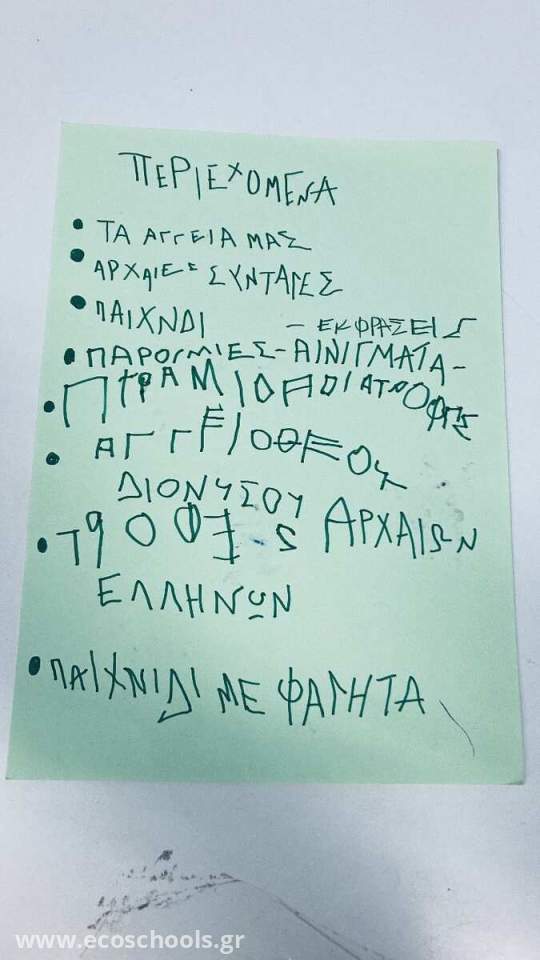 ΠΕΡΙΕΧΟΜΕΝΑ
• ΤΑ ΑΓΓΕΙΑ ΜΑΣ
• ΑΡΧΑΙΕΣ ΣΥΝΤΑΓΕΣ
• ΠΑΙΧΝΔΙ
– ΕΚΦΡΑΣΕΙΣ
• ΠΑΡΟΙΜΙΕΣ-ΑΙΝΙΓΜΑΤΑ-
• ΠΥΡΑΜΙΔΑ ΔΙΑΤΡΟΦΗΣ
• ΑΓΓΕΙΟ ΘΕΟΥ
ΔΙΟΝΥΣΟΥ
• ΤΡΟΦΕΣ ΑΡΧΑΙΩΝ
ΕΛΛΗΝΩΝ
• ΠΑΙΧΝΙΔΙ ΜΕ ΦΑΓΗΤΑ
www.ecoschools.gr